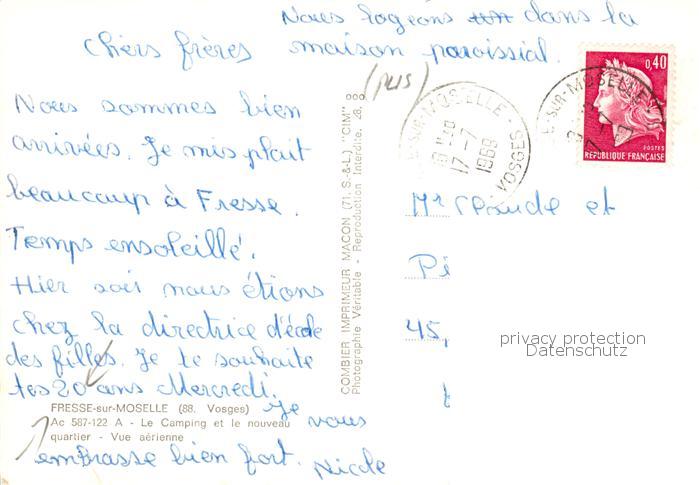 Nous logeons dans la
maison paroissial.
Chers frères
Nous sommes bien
arrivées. Je mis plait
beaucoup à Fresse.
Temps ensoleillé.
Hier soir nous étions
chez la directrice d'école
des filles. Je te souhaite
tes 20 ans Mercredi.
Je vous
embrasse bien fort. Nicole
FRESSE-sur-MOSELLE (88. Vosges)
Ac 587-122 A - Le Camping et le nouveau
quartier - Vue aérienne
COMBIER IMPRIMEUR MACON (71. S.-&-L.) "CIM"
Photographie Véritable - Reproduction Interdite.
-SUR-MOSELLE
17-7
1969
VOSGES
-SUR-MOSELLE
0,40
POSTES
RÉPUBLIQUE FRANÇAISE
Mr Claude et
Pi
45,
privacy protection
Datenschutz